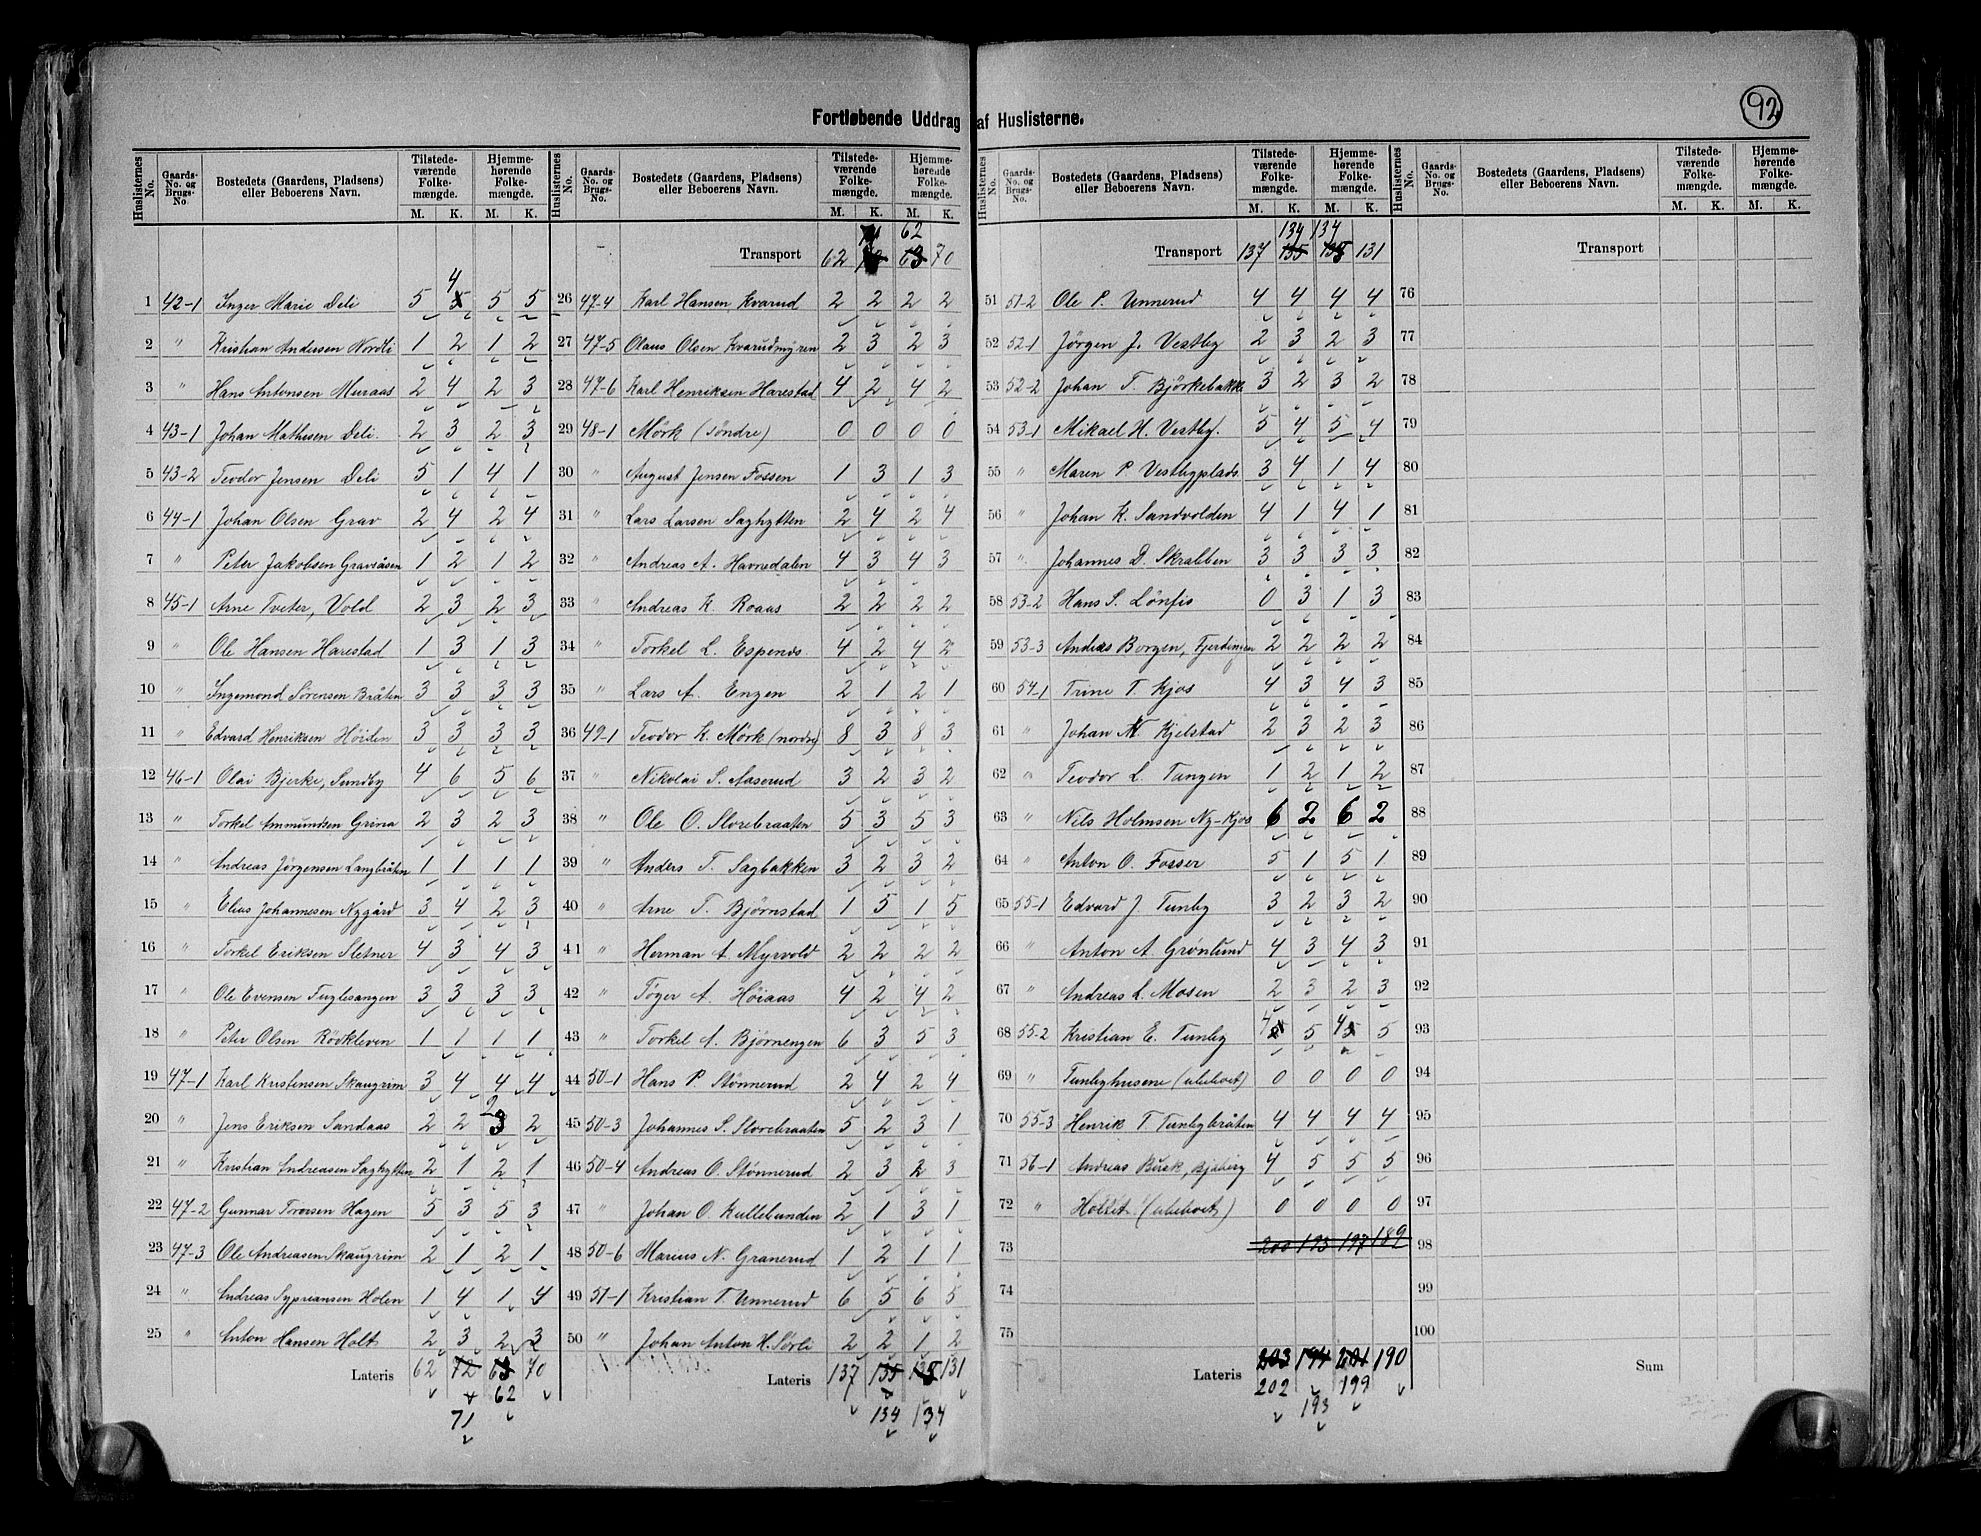 92
Fortløbende Uddrag af Huslisterne.
Huslisternes No. | Gaards-No. og Brugs-No | Bostedets (Gaardens, Pladsens) eller Beboerens Navn. | Tilstedeværende Folkemængde. M. K. | Hjemmehørende Folkemængde. M. K.
1 42-1 Inger Marie Deli 5 5 4 5 5
2 " Kristian Andersen Nordli 1 2 1 2
3 " Hans Antonsen Muraas 2 4 2 3
4 43-1 Johan Mathisen Deli. 2 3 2 3
5 43-2 Teodor Jensen Deli 5 1 4 1
6 44-1 Johan Olsen Grav 2 4 2 4
7 " Peter Jakobsen Gravåsen 1 2 1 2
8 45-1 Arne Tveter, Vold 2 3 2 3
9 " Ole Hansen Harestad 1 3 1 3
10 " Ingemond Sørensen Bråten 3 3 3 3
11 " Edvard Henriksen Höiden 3 3 3 3
12 46-1 Olai Bjerke, Sundby 4 6 5 6
13 " Torkel Ammundsen Grina 2 3 2 3
14 " Andreas Jörgensen Langbråten 1 1 1 1
15 " Elias Johannesen Nygård 3 4 2 3
16 " Torkel Eriksen Sletner 4 3 4 3
17 " Ole Evensen Fuglesangen 3 3 3 3
18 " Peter Olsen Rövkleven 1 1 1 1
19 47-1 Karl Kristensen Skaugrim 3 4 4 4
20 " Jens Eriksen Sandaas 2 2 3 2 2
21 " Kristian Andreasen Saghytten 2 1 2 1
22 47-2 Gunnar Torersen Hagen 5 3 5 3
23 47-3 Ole Andreasen Skaugrim 2 1 2 1
24 " Andreas Sypriansen Holen 1 4 1 4
25 " Anton Hansen Holt 2 3 2 3
Lateris 62 72 63 70
71 62
Huslisternes No. | Gaards-No. og Brugs-No. | Bostedets (Gaardens, Pladsens) eller Beboerens Navn. | Tilstedeværende Folkemængde. M. K. | Hjemmehørende Folkemængde. M. K.
62
Transport 62 63 70
26 47-4 Karl Hansen Kvarud 2 2 2 2
27 47-5 Olaus Olsen Kvarudmyren 2 3 2 3
28 47-6 Karl Henriksen Harestad 4 2 4 2
29 48-1 Mörk (söndre) 0 0 0 0
30 " August Jensen Fossen 1 3 1 3
31 " Lars Larsen Saghytten 2 4 2 4
32 " Andreas A. Havnedalen 4 3 4 3
33 " Andreas K. Roaas 2 2 2 2
34 " Torkel L. Espenes 4 2 4 2
35 " Lars A. Engen 2 1 2 1
36 49-1 Teodor K. Mörk (nordre) 8 3 8 3
37 " Nikolai S. Aaserud 3 2 3 2
38 " Ole O. Storebraaten 5 3 5 3
39 " Anders T. Sagbakken 3 2 3 2
40 " Arne T. Bjørnstad 1 5 1 5
41 " Herman A. Myrvold 2 2 2 2
42 " Töger A. Höiaas 4 2 4 2
43 " Torkel A. Bjørnengen 6 3 5 3
44 50-1 Hans P Stønnerud 2 4 2 4
45 50-3 Johannes S. Storebraaten 5 2 3 1
46 50-4 Andreas O. Stønnerud 2 3 2 3
47 " Johan O. Kullebunden 2 1 3 1
48 50-6 Marius N. Granerud 1 2 1 1
49 51-1 Kristian T. Unnerud 6 5 6 5
50 " Johan Anton H. Sørli 2 2 1 2
Lateris 137 135 135 131
134 134
Huslisternes No. | Gaards-No. og Brugs-No. | Bostedets (Gaardens, Pladsens) eller Beboerens Navn. | Tilstedeværende Folkemængde. M. K. | Hjemmehørende Folkemængde. M. K.
134 134
Transport 137 135 135 131
51 51-2 Ole P. Unnerud 4 4 4 4
52 52-1 Jørgen J. Vestby 2 3 2 3
53 52-2 Johan T. Bjørkebakk 3 2 3 2
54 53-1 Mikael H. Vestby. 5 4 5 4
55 " Maren P Vestbyplads. 3 4 1 4
56 " Johan K. Sandvolden 4 1 4 1
57 " Johannes D. Skrabben 3 3 3 3
58 53-2 Hans S. 0 3 1 3
59 53-3 Andreas Borgen, Fjerdingen 2 2 2 2
60 54-1 Trine T. Kjos 4 3 4 3
61 " Johan M Kjelstad 2 3 2 3
62 " Teodor L. Tangen 1 2 1 2
63 " Nils Holmsen Ny-Kjos 6 2 6 2
64 " Anton O. Fosser 5 1 5 1
65 55-1 Edvard J. Tunby 3 2 3 2
66 " Anton A. Grønlund 4 3 4 3
67 " Andreas L. Mosen 2 3 2 3
68 55-2 Kristian E. Tunby 4 5 5 4 5 5
69 " Tunbyhusene (ubeboet) 0 0 0 0
70 55-3 Henrik T Tunbybråten 4 4 4 4
71 56-1 Andreas Busk, Bjaberg 4 5 5 5
72 " Holtet (ubeboet) 0 0 0 0
73 200 193 197 189
74
75
Lateris 203 194 201 190
202 193 199
Huslisternes No. | Gaards-No. og Brugs-No. | Bostedets (Gaardens, Pladsens) eller Beboerens Navn. | Tilstedeværende Folkemængde. M. K. | Hjemmehørende Folkemængde. M. K.
Transport
76
77
78
79
80
81
82
83
84
85
86
87
88
89
90
91
92
93
94
95
96
97
98
99
100
Sum